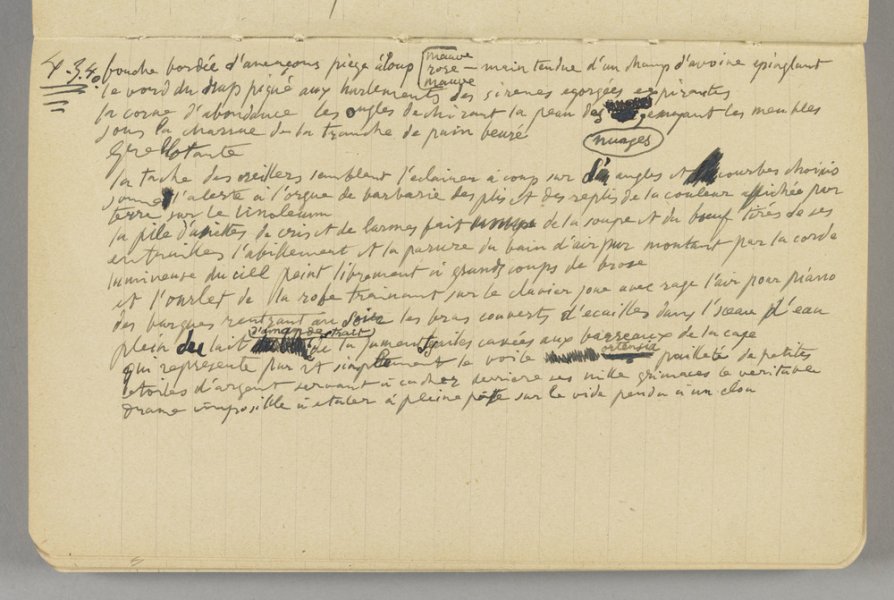 4.3.40
bouche bordée d'ameçons piege à loup mauve rose mauve — main tendue d'un champ d'avoine epinglant
le bord du drap piqué aux hurlements des sirenes egorgées expirantes
la corne d'abondance les ongles dechirant la peau des nuages essuyant les meubles
sous la charrue de la tranche de pain beuré
Grelotante
la tache des oreillers semblant l'eclairer à coup sur d' angles et courbes choisis
sonne l'alerte à l'orgue de barbarie des plis et des replis de la couleur affichée par
terre sur le linoleum
la pile d'assiettes de cris et de larmes fait de la soupe et du bœuf tirés de ses
entrailles l'abillement et la parure du bain d'air pur montant par la corde
lumineuse du ciel peint librement à grands coups de brose
et l'ourlet de la robe trainant sur le clavier joue avec rage l'air pour piano
des barques rentrant au soir les bras couverts d'ecailles dans l'sceau d'eau
plein du lait d'amandes trait de la jument cuvées aux barreaux de la cage
qui represente pur et simplement le voile ortensia pailleté de petites
etoiles d'argent servant à cacher derriere ses mille grimaces le veritable
drame imposible à etaler à pleine pate sur le vide pendu à un clou